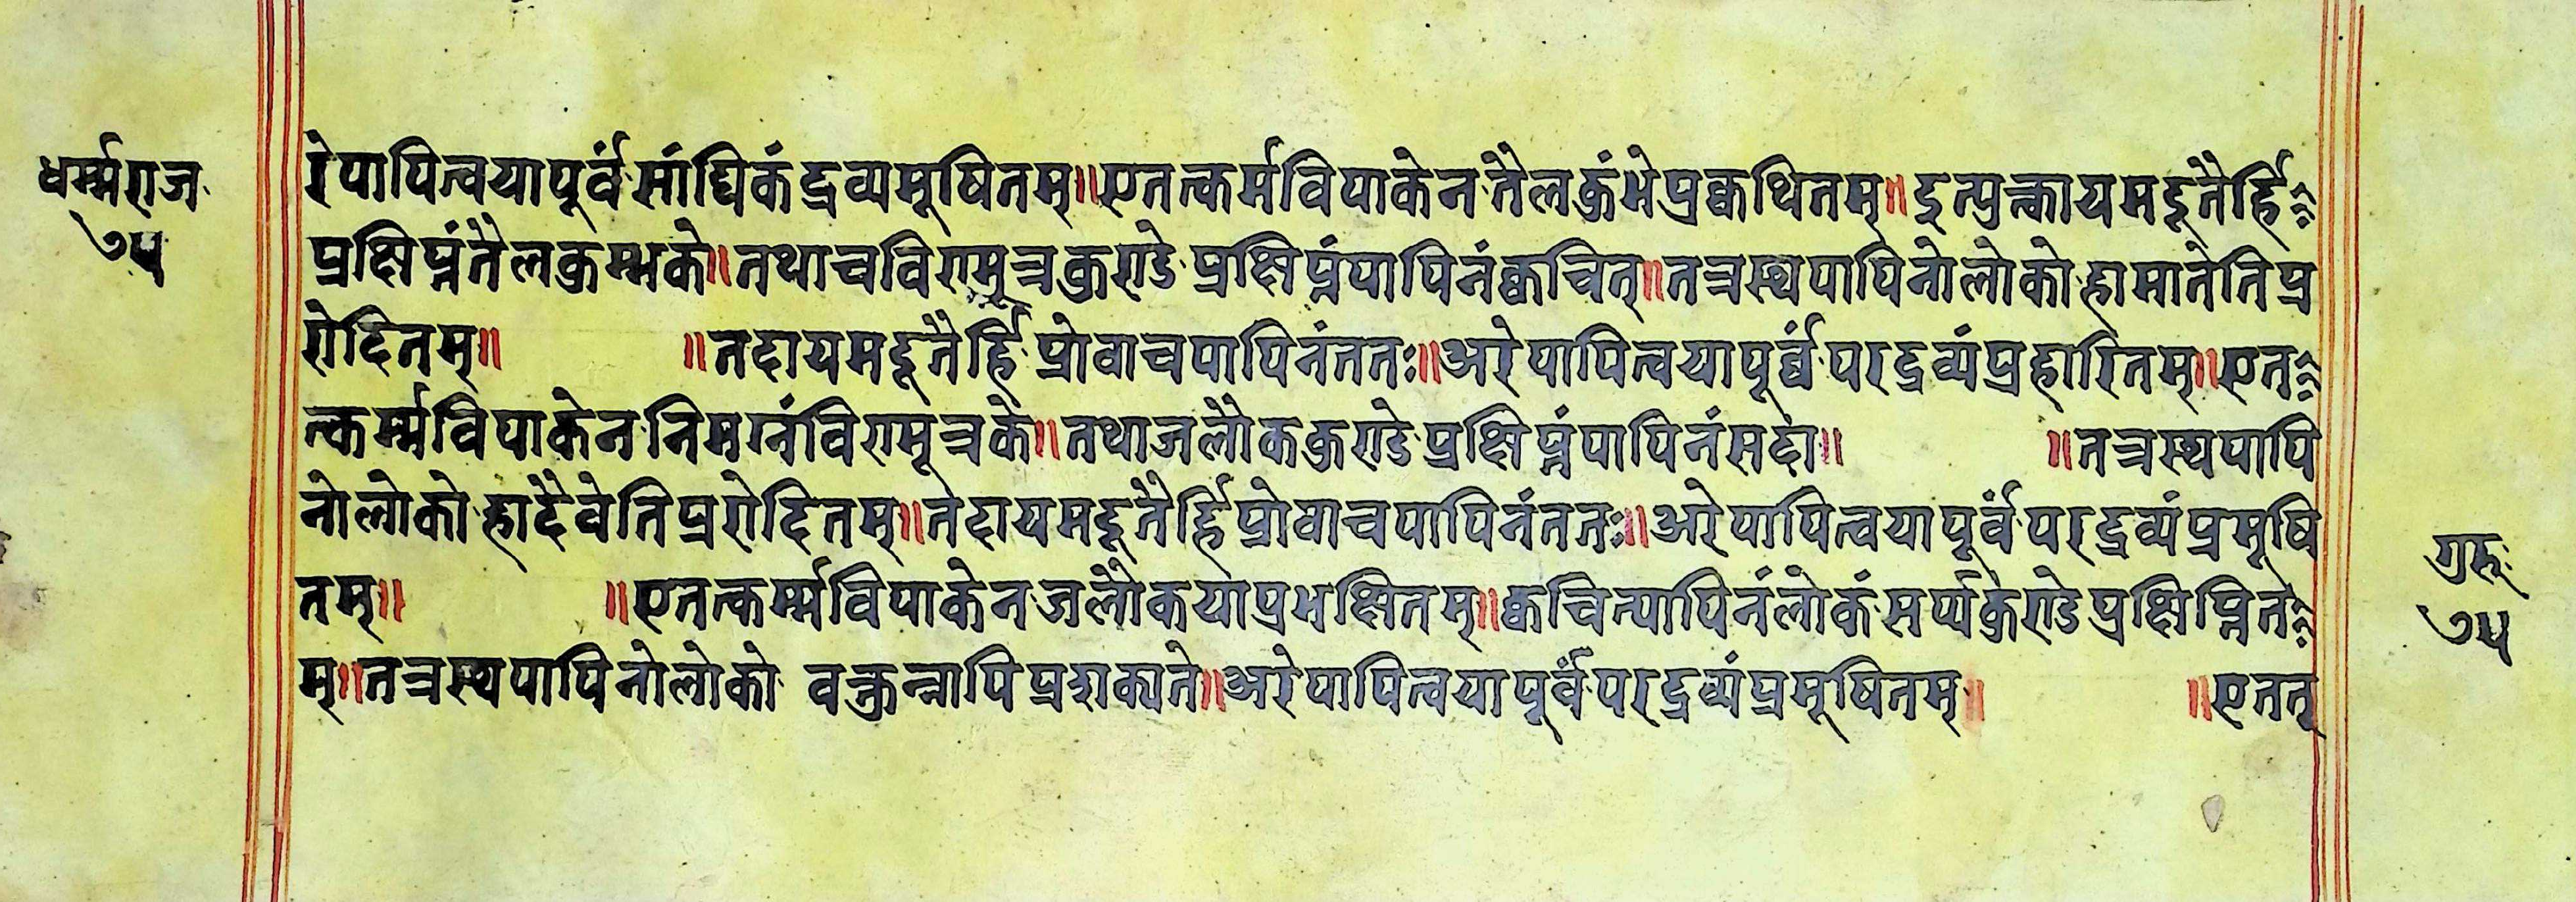 धर्म्मराज
७५
रेपापित्वयापूर्वंसांघिकंद्रव्यमूषितम्॥एतत्कर्मविपाकेनतैलकुंभेप्रक्वथितम्॥इत्युक्त्वायमदूतैर्हि
प्रक्षिप्तंतैलकुम्भके॥तथाचविण्मूत्रकुण्डेप्रक्षिप्तंपापिनंक्वचित्॥तत्रस्थपापिनोलोकोहामातेतिप्र
रोदितम्॥ ॥तदायमदूतैर्हिप्रोवाचपापिनंततः॥अरेपापित्वयापूर्व्वंपरद्रव्यंप्रहारितम्॥एत
त्कर्म्मविपाकेननिमग्नंविण्मूत्रके॥तथाजलौककुण्डेप्रक्षिप्तंपापिनंसदा॥ ॥तत्रस्थपापि
नोलोकोहादैवेतिप्ररोदितम्॥तदायमदूतैर्हिप्रोवाचपापिनंततः॥अरेपापित्वयापूर्वंपरद्रव्यंप्रमूषि
तम्॥ ॥एतत्कर्म्मविपाकेनजलौकयाप्रभक्षितम्॥क्वचित्पापिनंलोकंसर्प्पकुण्डेप्रक्षिप्नित
म्॥तत्रस्थपापिनोलोको वक्तुन्नापिप्रशक्यते॥अरेपापित्वयापूर्वंपरद्रव्यंप्रमूषितम्॥ ॥एतत्
गुरुः
७५